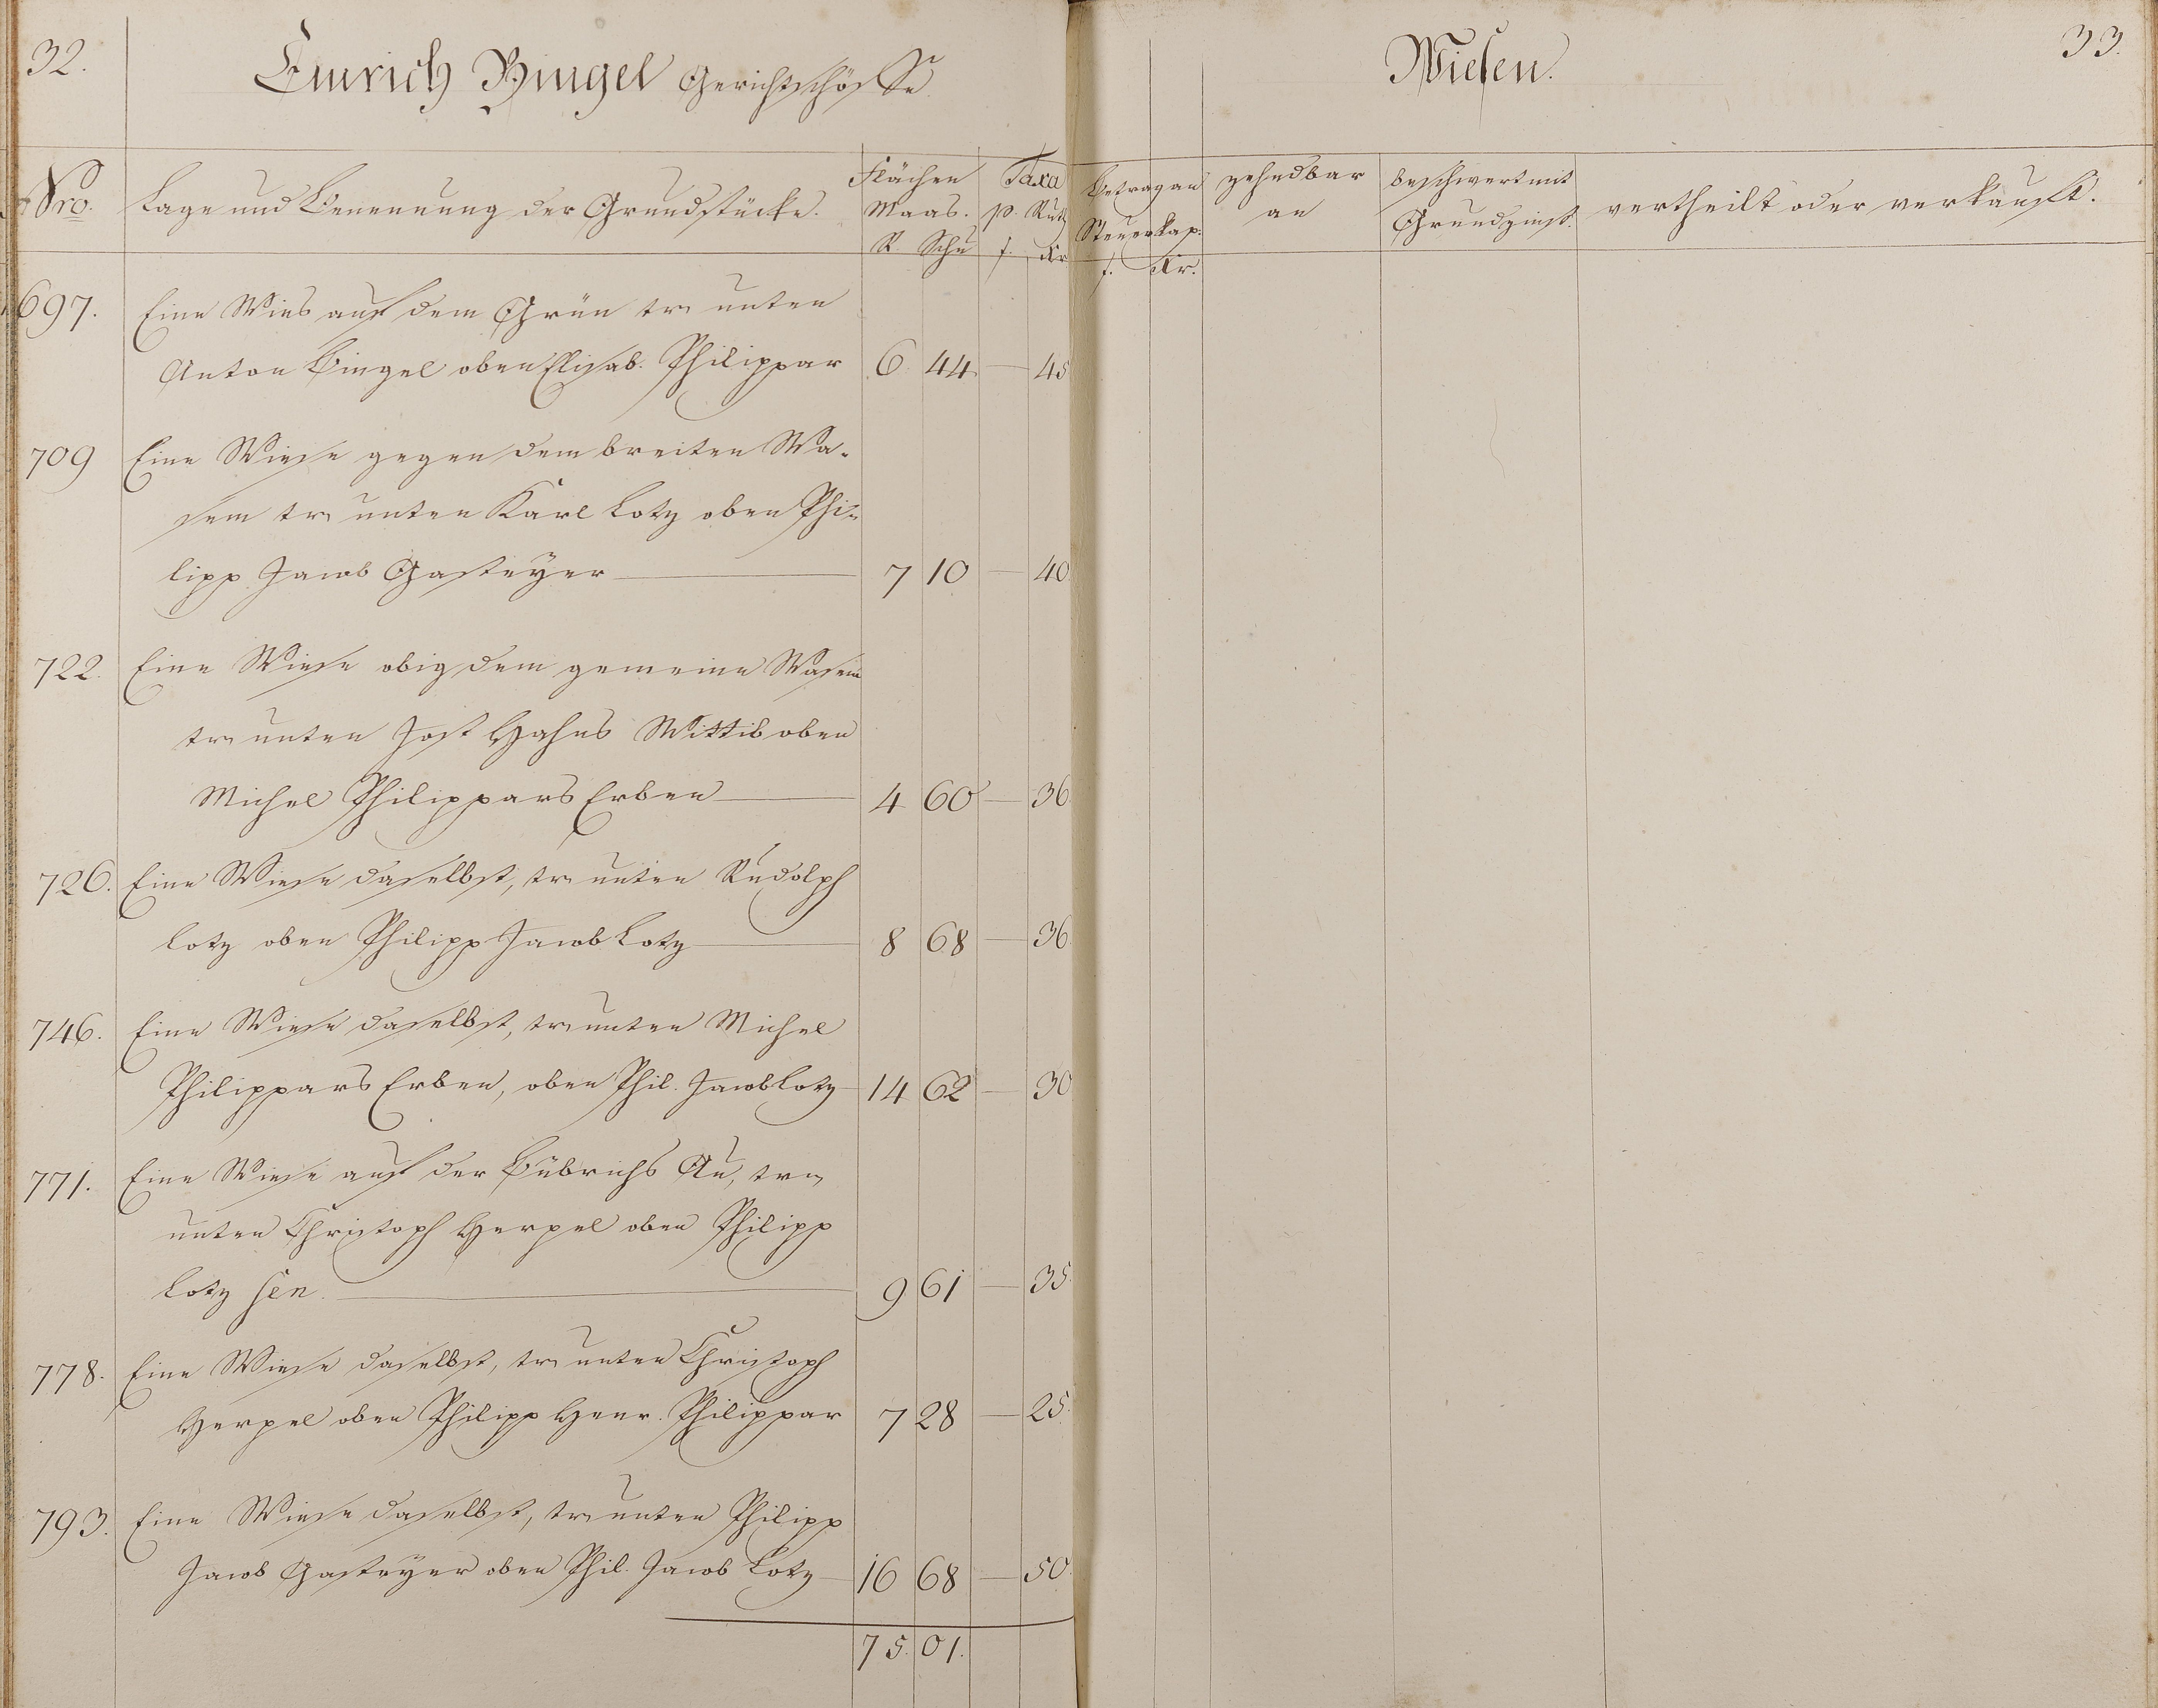 32.
Emrich Bingel Gerichtschöffe
Nro.
Lage und Benennung der Grundstücke.
Flächen Maas.
R. Schu
Taxa p. Ruth
f. Kr
697. Eine Wies auf dem Grün tr. unten
Anton Bingel oben Elisab. Philippar 6 44 — 45
709 Eine Wiese gegen dem breiten Wa-
sem tr. unten Karl Lotz oben Phi-
lipp Jacob Gasteyer — 7 10 — 40
722. Eine Wiese obig dem gemeine Wasem
tr. unten Jost Hahns Wittib oben
Michel Philippars Erben — 4 60 — 36
726. Eine Wiese daselbst, tr. unten Rudolph
Lotz oben Philipp Jacob Lotz — 8 68 — 36
746. Eine Wiese daselbst, tr. unten Michel
Philippars Erben, oben Phil. Jacob Lotz — 14 62 — 30
771. Eine Wiese auf der Bübrichs Au, tr.
unten Christoph Herpel oben Philipp
Lotz sen. — 9 61 — 35
778. Eine Wiese daselbst, tr. unten Christoph
Herpel oben Philipp Henr. Philippar 7 28 — 25
793. Eine Wiese daselbst, tr. unten Philipp
Jacob Gasteyer oben Phil. Jacob Lotz — 16 68 — 50
75. 01.
33.
Wiesen.
Betrag an Steuerkap.
f. Kr.
zehndbar an
beschwert mit Grundzinß.
vertheilt oder verkauft.